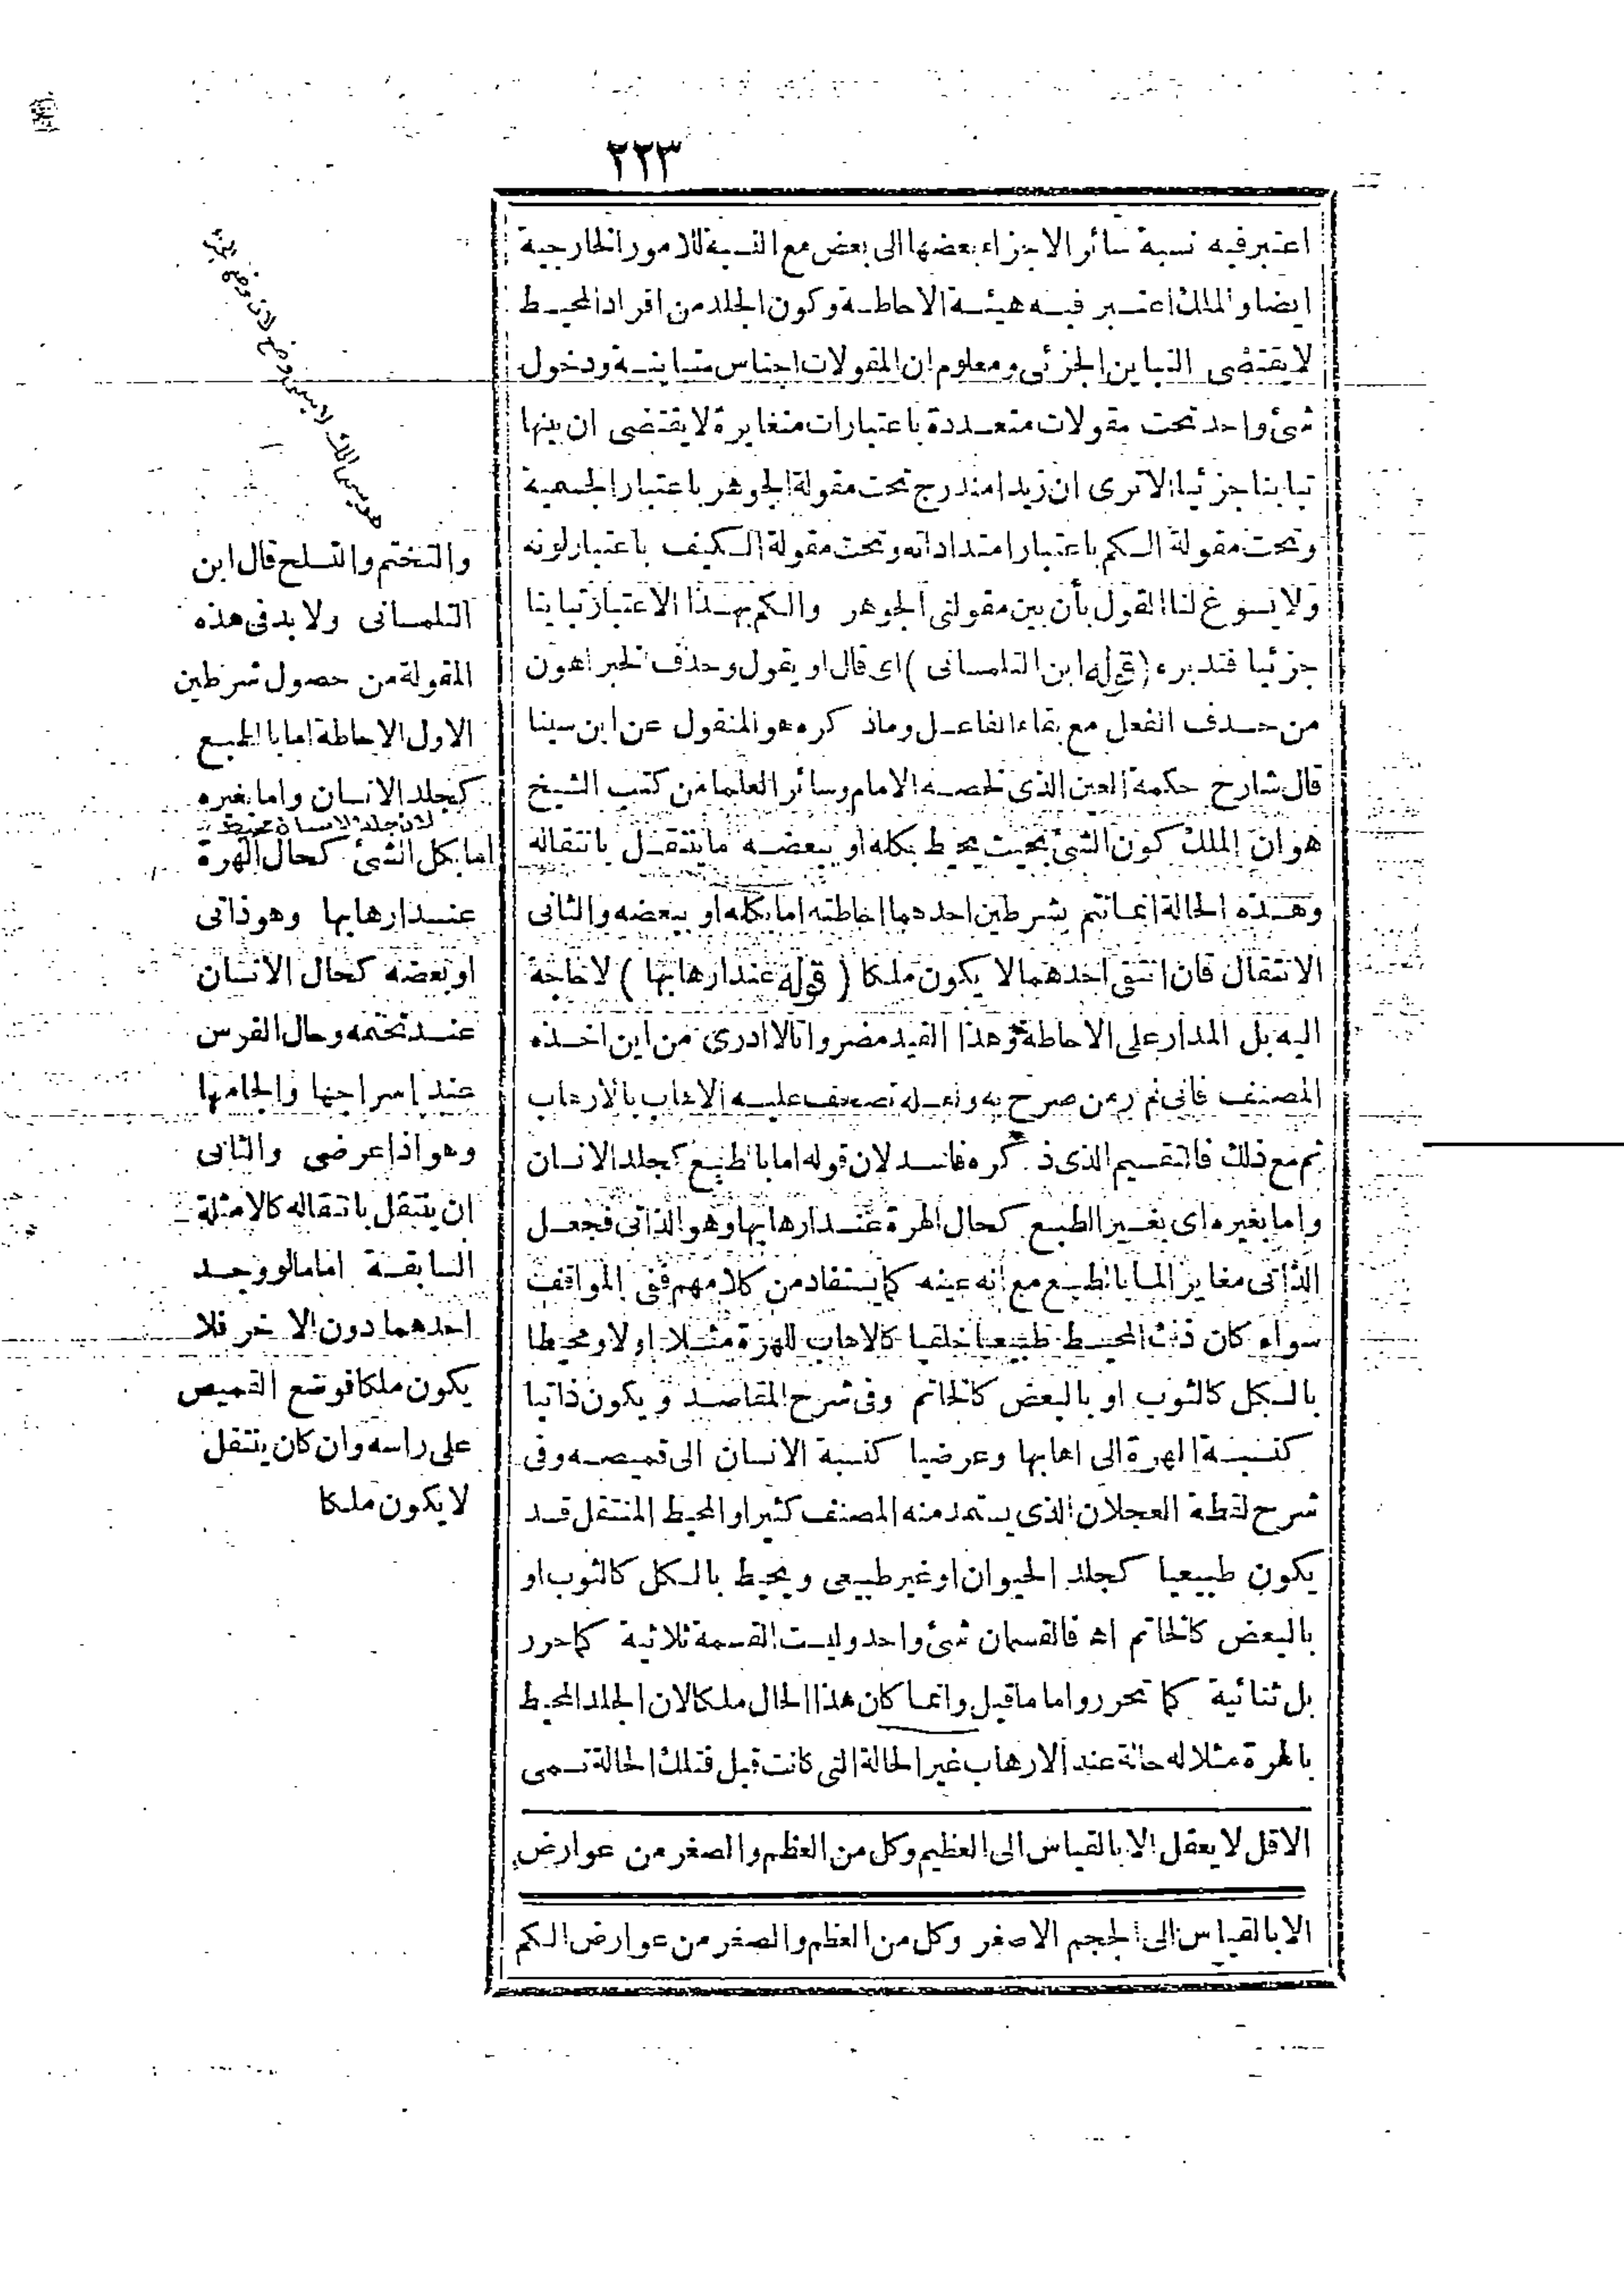 ٢٢٣
اعتبرفيه نسبة سائر الاجزاء بعضها الى بعض مع النسبة للامور الخارجية
ايضا والملك اعتبر فيه هيئة الاحاطة وكون الجلد من افراد المحيط
لا يقتضى التباين الجزئى ومعلوم ان المقولات اجناس متباينة ودخول
شئ واحد تحت مقولات متعددة باعتبارات متغايرة لا يقتضى ان بينها
تباينا جزئيا الا ترى ان زيدا مندرج تحت مقولة الجوهر باعتبار الجسمية
وتحت مقولة الكم باعتبار امتداداته وتحت مقولة الكيف باعتبار لونه
ولا يسوغ لنا القول بأن بين مقولتى الجوهر والكم بهذا الاعتبار تباينا
جزئيا فتدبره (قوله ابن التلمسانى) اى قال او يقول وحذف الخبر اهون
من حذف الفعل مع بقاء الفاعل وما ذكره هو المنقول عن ابن سينا
قال شارح حكمة العين الذى لخصه الامام وسائر العلماء من كتب الشيخ
هو ان الملك كون الشئ بحيث يحيط بكله او ببعضه ما ينتقل بانتقاله
وهذه الحالة انما تتم بشرطين احدهما احاطته اما بكله او ببعضه والثانى
الانتقال فان انتفى احدهما لا يكون ملكا (قوله عند ارهابها) لا حاجة
اليه بل المدار على الاحاطة وهذا القيد مضر وانا لا ادرى من اين اخذه
المصنف فانى لم ار من صرح به ولعله تصحف عليه الاهاب بالارهاب
ثم مع ذلك فالتقسيم الذى ذكره فاسد لان قوله اما بالطبع كجلد الانسان
واما بغيره اى بغير الطبع كحال الهرة عند ارهابها وهو الذاتى فجعل
الذاتى مغايرا لما بالطبع مع انه عينه كما يستفاد من كلامهم ففى المواقف
سواء كان ذلك المحيط طبيعيا خلقيا كالاهاب للهرة مثلا او لا ومحيطا
بالكل كالثوب او بالبعض كالخاتم وفى شرح المقاصد ويكون ذاتيا
كنسبة الهرة الى اهابها وعرضيا كنسبة الانسان الى قميصه وفى
شرح لقطة العجلان الذى يستمد منه المصنف كثيرا والمحيط المنتقل قد
يكون طبيعيا كجلد الحيوان او غير طبيعى ويحيط بالكل كالثوب او
بالبعض كالخاتم اه فالقسمان شئ واحد وليست القسمة ثلاثية كما حرر
بل ثنائية كما تحرر واما ما قيل وانما كان هذا الحال ملكا لان الجلد المحيط
بالهرة مثلا له حالة عند الارهاب غير الحالة التى كانت قبل فتلك الحالة تسمى
الاقل لا يعقل الا بالقياس الى العظيم وكل من العظم والصغر من عوارض
الا بالقياس الى الحجم الاصغر وكل من العظم والصغر من عوارض الكم
والتختم والتسلح قال ابن
التلمسانى ولا بد فى هذه
المقولة من حصول شرطين
الاول الاحاطة اما بالطبع
كجلد الانسان واما بغيره
لان جلد الانسان محيط
اما بكل الشئ كحال الهرة
عند ارهابها وهو ذاتى
او بعضه كحال الانسان
عند تختمه وحال الفرس
عند إسراجها والجامها
وهو اذا عرضى والثانى
ان ينتقل بانتقاله كالامثلة
السابقة اما مالو وجد
احدهما دون الاخر فلا
يكون ملكا فوضع القميص
على راسه وان كان ينتقل
لا يكون ملكا